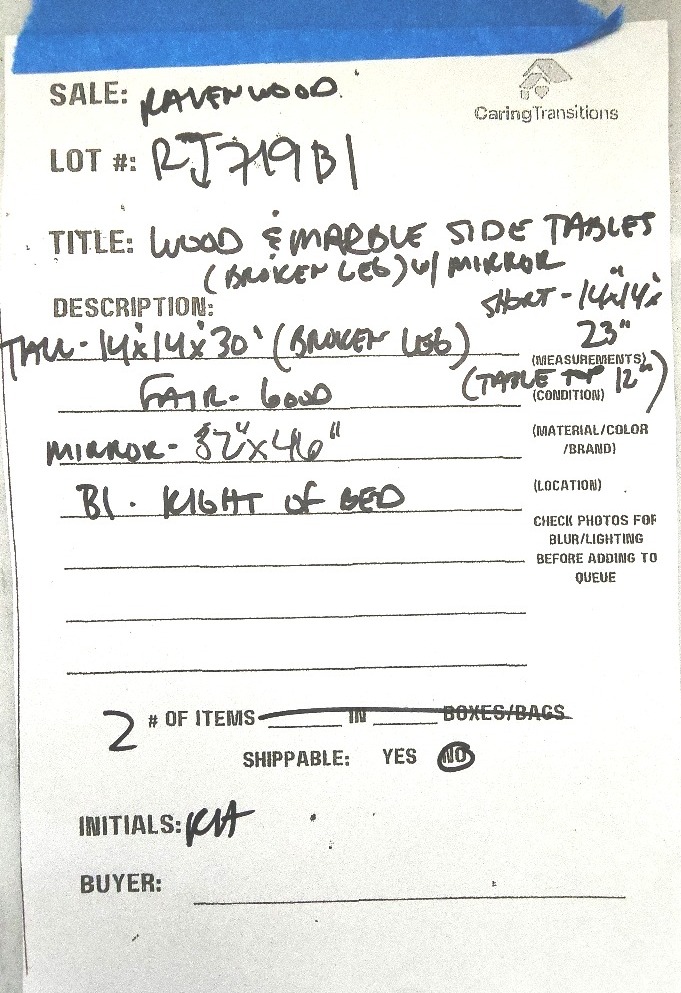 SALE: RAVENWOOD
CaringTransitions
LOT #: RJ719B1
TITLE: WOOD & MARBLE SIDE TABLES
(BROKEN LEG) W/ MIRROR
DESCRIPTION:
SHORT - 14"x14"x
23"
TALL - 14"x14"x30" (BROKEN LEG)
(MEASUREMENTS)
(TABLE TOP 12")
FAIR - GOOD
(CONDITION)
MIRROR - 32"x46"
(MATERIAL/COLOR
/BRAND)
B1. RIGHT OF BED
(LOCATION)
CHECK PHOTOS FOR
BLUR/LIGHTING
BEFORE ADDING TO
QUEUE
2 # OF ITEMS ______ IN ______ BOXES/BAGS
SHIPPABLE: YES NO
INITIALS: KH
BUYER: